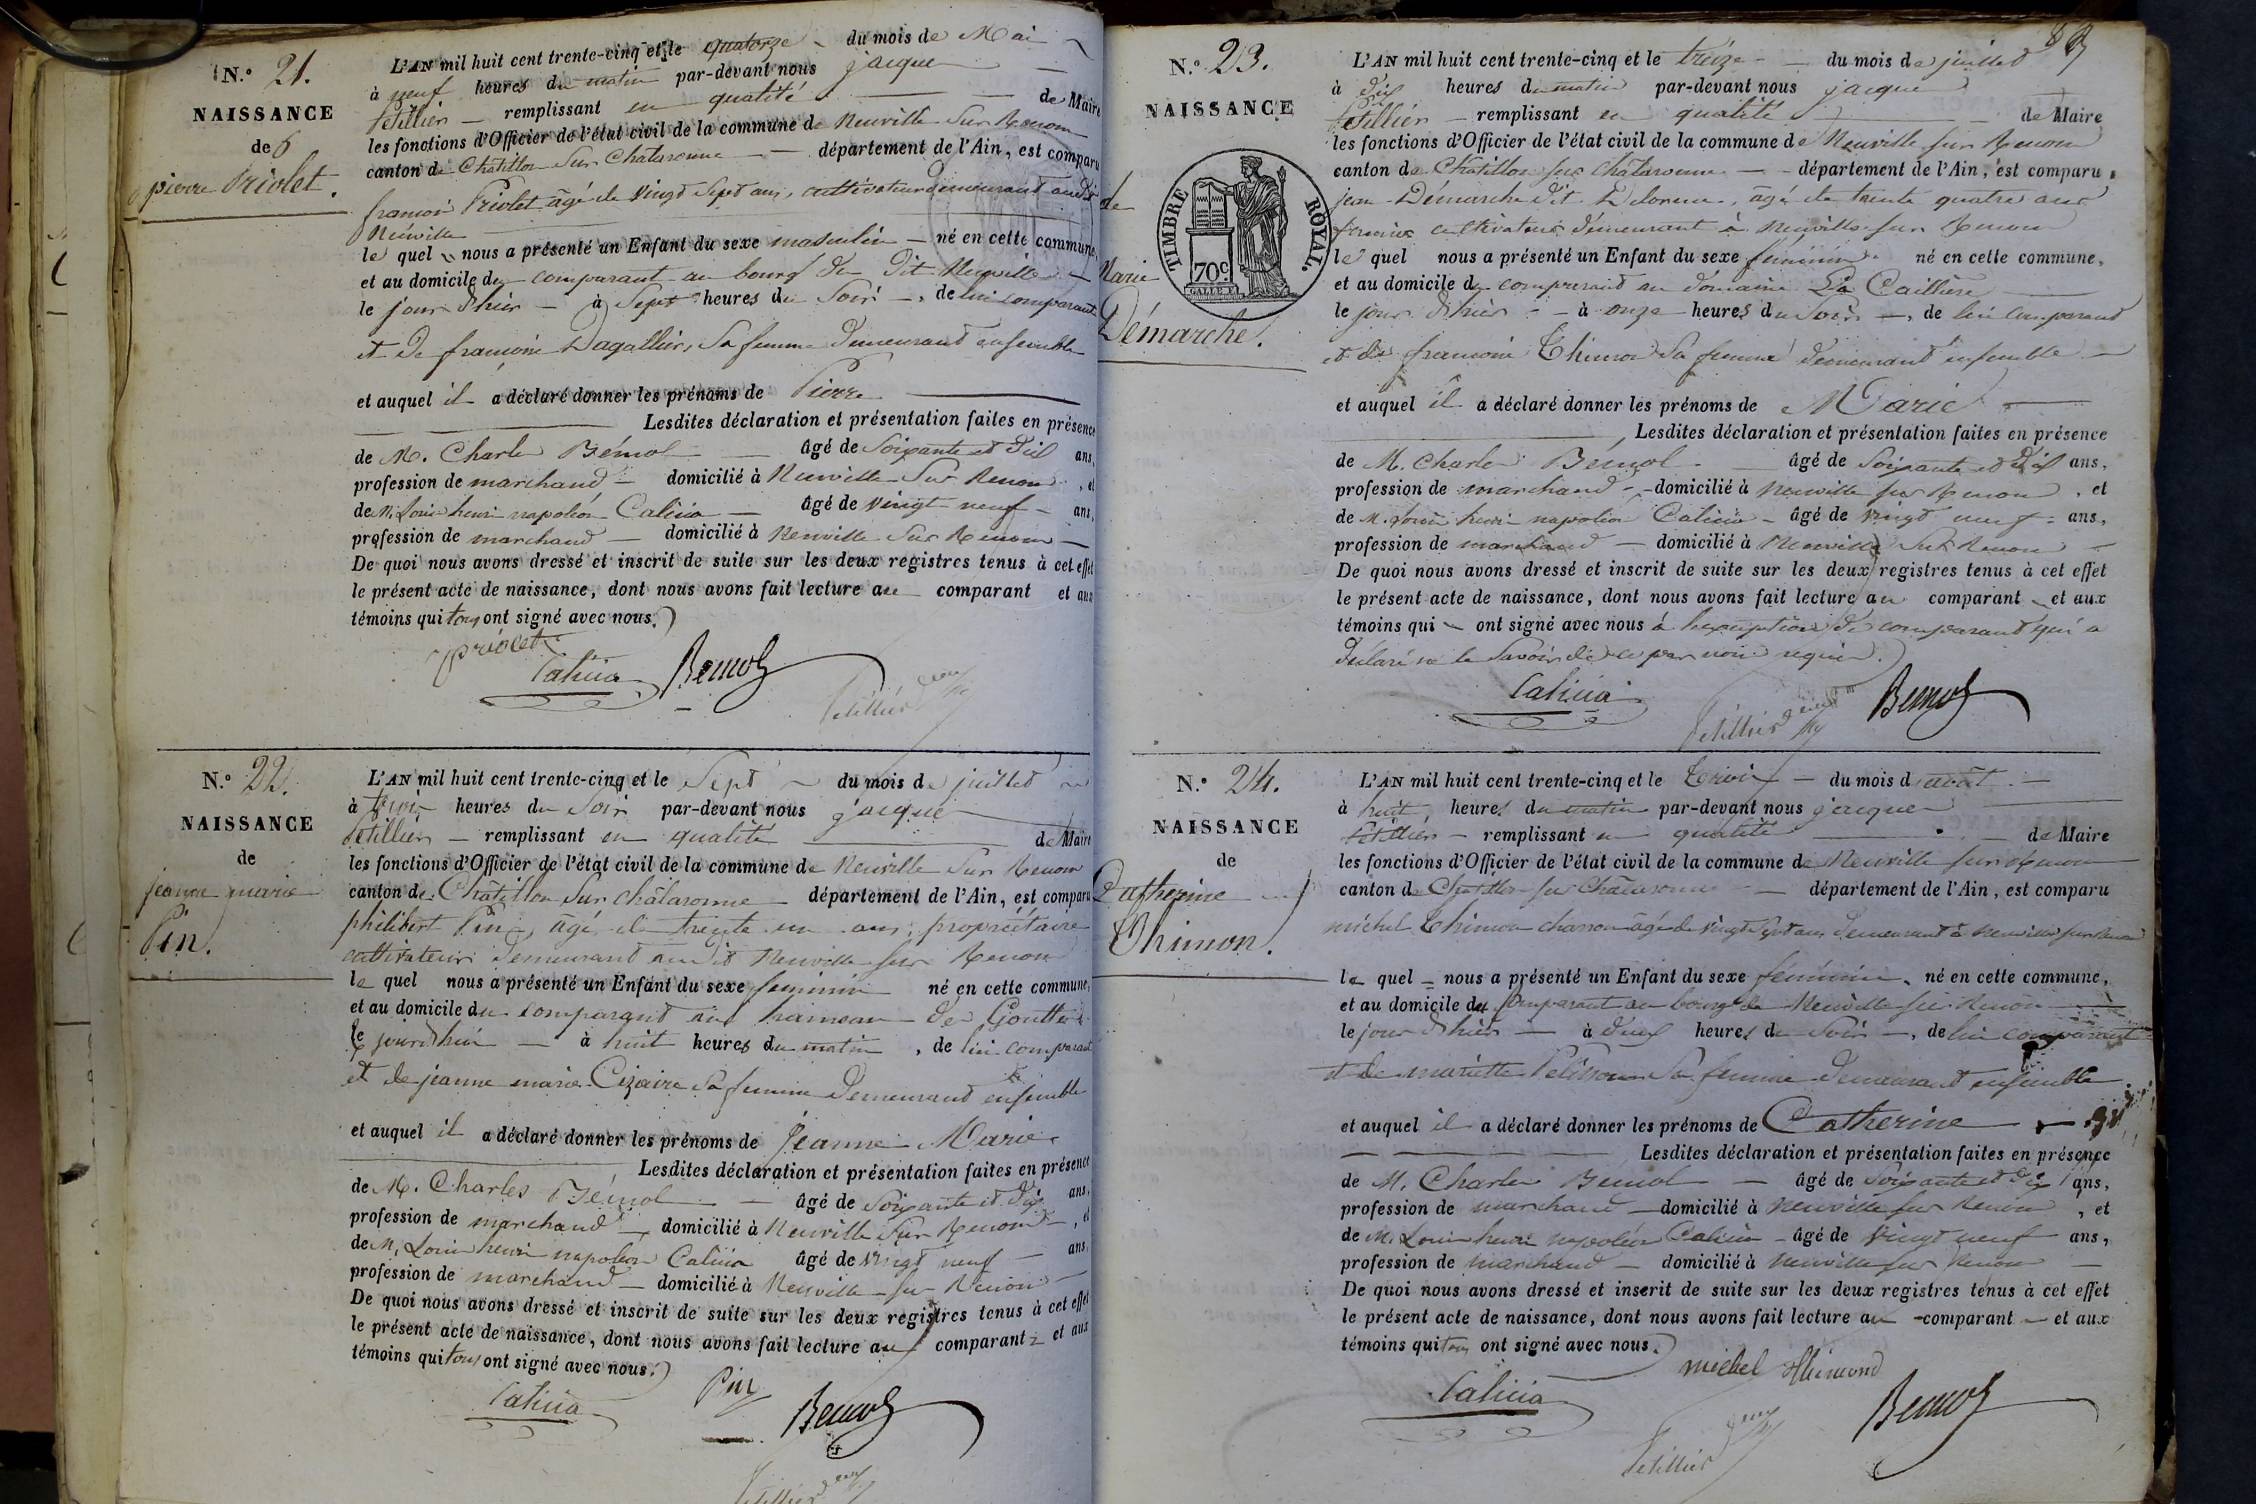 N.° 21.
NAISSANCE
de
pierre Priolet.
L'AN mil huit cent trente-cinq et le quatorze du mois de Mai
à neuf heures du matin par-devant nous jacque
Petillier remplissant en qualité de Maire
les fonctions d'Officier de l'état civil de la commune de Neuville Sur Renom
canton de Châtillon Sur Chalaronne département de l'Ain, est comparu
francois Priolet âgé de vingt Sept ans, cultivateur demeurant au dit
Neuville
le quel nous a présenté un Enfant du sexe masculin né en cette commune,
et au domicile du comparant au bourg du dit Neuville
le jour d'hier à Sept heures du Soir, de lui comparant
et de francoise Dagallier, Sa femme demeurant ensemble
et auquel il a déclaré donner les prénoms de Pierre
Lesdites déclaration et présentation faites en présence
de M. Charles Bémol âgé de Soixante et dix ans,
profession de marchand domicilié à Neuville Sur Renom, et
de M. Louis henri napoléon Calicia âgé de vingt neuf ans,
profession de marchand domicilié à Neuville Sur Renom
De quoi nous avons dressé et inscrit de suite sur les deux registres tenus à cet effet
le présent acte de naissance, dont nous avons fait lecture au comparant et aux
témoins qui tous ont signé avec nous.
priolet
Calicia Bemol
Petillier
N.° 22.
NAISSANCE
de
jeanne marie
Pin.
L'AN mil huit cent trente-cinq et le Sept du mois de juillet
à trois heures du Soir par-devant nous jacque
Petillier remplissant en qualité de Maire
les fonctions d'Officier de l'état civil de la commune de Neuville Sur Renom
canton de Châtillon Sur Châlaronne département de l'Ain, est comparu
philibert Pin, âgé de trente un ans, propriétaire
cultivateur demeurant au dit Neuville sur Renom
le quel nous a présenté un Enfant du sexe feminin né en cette commune,
et au domicile du comparant au hameau de Goutter
le jour d'hier à huit heures du matin, de lui comparant
et de jeanne marie Cizaire Sa femme demeurant ensemble
et auquel il a déclaré donner les prénoms de Jeanne Marie
Lesdites déclaration et présentation faites en présence
de M. Charles Bémol âgé de Soixante et dix ans,
profession de marchand domicilié à Neuville Sur Renom, et
de M. Louis henri napoléon Calicia âgé de vingt neuf ans,
profession de marchand domicilié à Neuville sur Renom
De quoi nous avons dressé et inscrit de suite sur les deux registres tenus à cet effet
le présent acte de naissance, dont nous avons fait lecture au comparant et aux
témoins qui tous ont signé avec nous.
Calicia Pin Bemol
Petillier
N.° 23.
NAISSANCE
de
TIMBRE ROYAL.
70c
Marie
Démarche.
L'AN mil huit cent trente-cinq et le treize du mois de juillet
à dix heures du matin par-devant nous jacque
Petillier remplissant en qualité de Maire
les fonctions d'Officier de l'état civil de la commune de Neuville sur Renom
canton de Châtillon sur Châlaronne département de l'Ain, est comparu
jean Démarche dit Delorme, âgé de trente quatre ans
cultivateur demeurant à Neuville sur Renom
le quel nous a présenté un Enfant du sexe féminin né en cette commune,
et au domicile du comparant au domaine La Caillière
le jour d'hier à onze heures du Soir, de lui comparant
et de francoise Thimon Sa femme demeurant ensemble
et auquel il a déclaré donner les prénoms de Marie
Lesdites déclaration et présentation faites en présence
de M. Charles Bémol âgé de Soixante et dix ans,
profession de marchand domicilié à Neuville sur Renom, et
de M. Louis henri napoléon Calicia âgé de vingt neuf ans,
profession de marchand domicilié à Neuville Sur Renom
De quoi nous avons dressé et inscrit de suite sur les deux registres tenus à cet effet
le présent acte de naissance, dont nous avons fait lecture au comparant et aux
témoins qui ont signé avec nous à l'exception du comparant qui a
declaré ne le Savoir de ce par nous requis.
Calicia Petillier Bemol
N.° 24.
NAISSANCE
de
Catherine
Thimon.
L'AN mil huit cent trente-cinq et le trois du mois d'août
à huit heures du matin par-devant nous jacque
Petillier remplissant en qualité de Maire
les fonctions d'Officier de l'état civil de la commune de Neuville sur Renom
canton de Châtillon sur Châlaronne département de l'Ain, est comparu
michel Thimon charron âgé de vingt Sept ans demeurant à Neuville sur Renom
le quel nous a présenté un Enfant du sexe féminin, né en cette commune,
et au domicile du comparant au bourg de Neuville sur Renom
le jour d'hier à deux heures du Soir, de lui comparant
et de mariette Pelisson Sa femme demeurant ensemble
et auquel il a déclaré donner les prénoms de Catherine
Lesdites déclaration et présentation faites en présence
de M. Charles Bemol âgé de Soixante et dix ans,
profession de marchand domicilié à Neuville sur Renom, et
de M. Louis henri napoléon Calicia âgé de vingt neuf ans,
profession de marchand domicilié à Neuville sur Renom
De quoi nous avons dressé et inscrit de suite sur les deux registres tenus à cet effet
le présent acte de naissance, dont nous avons fait lecture au comparant et aux
témoins qui tous ont signé avec nous.
michel thimond
Calicia Bemol
Petillier